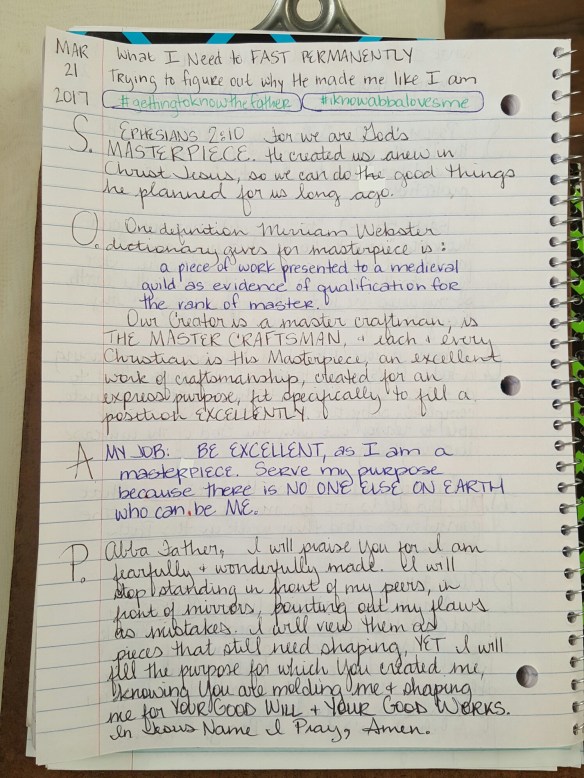 MAR
21
2017
What I Need to FAST PERMANENTLY
Trying to figure out why He made me like I am
#gettingtoknowthefather #iknowabbalovesme
S. EPHESIANS 2:10 For we are God's
MASTERPIECE. He created us anew in
Christ Jesus, so we can do the good things
he planned for us long ago.
O. One definition Merriam Webster
dictionary gives for masterpiece is:
a piece of work presented to a medieval
guild as evidence of qualification for
the rank of master.
Our Creator is a master craftman, is
THE MASTER CRAFTSMAN, + each + every
Christian is His Masterpiece, an excellent
work of craftsmanship, created for an
express purpose, fit specifically to fill a
position EXCELLENTLY.
A MY JOB: BE EXCELLENT, as I am a
masterpiece. Serve my purpose
because there is NO ONE ELSE ON EARTH
who can be ME.
P. Abba Father, I will praise You for I am
fearfully + wonderfully made. I will
stop standing in front of my peers, in
front of mirrors, pointing out my flaws
as mistakes. I will view them as
pieces that still need shaping, YET I will
fill the purpose for which You created me,
knowing You are molding me + shaping
me for YOUR GOOD WILL + YOUR GOOD WORKS.
In Jesus Name I Pray, Amen.